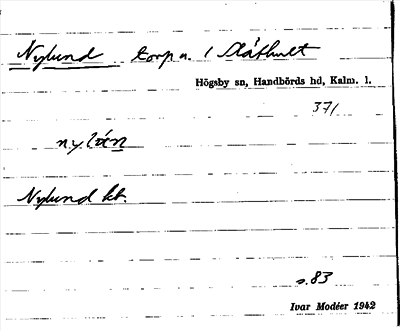 Nylund torp u. / Slåthult
Högsby sn, Handbörds hd, Kalm. l.
371
Nylund kt.
s. 83
Ivar Modéer 1942